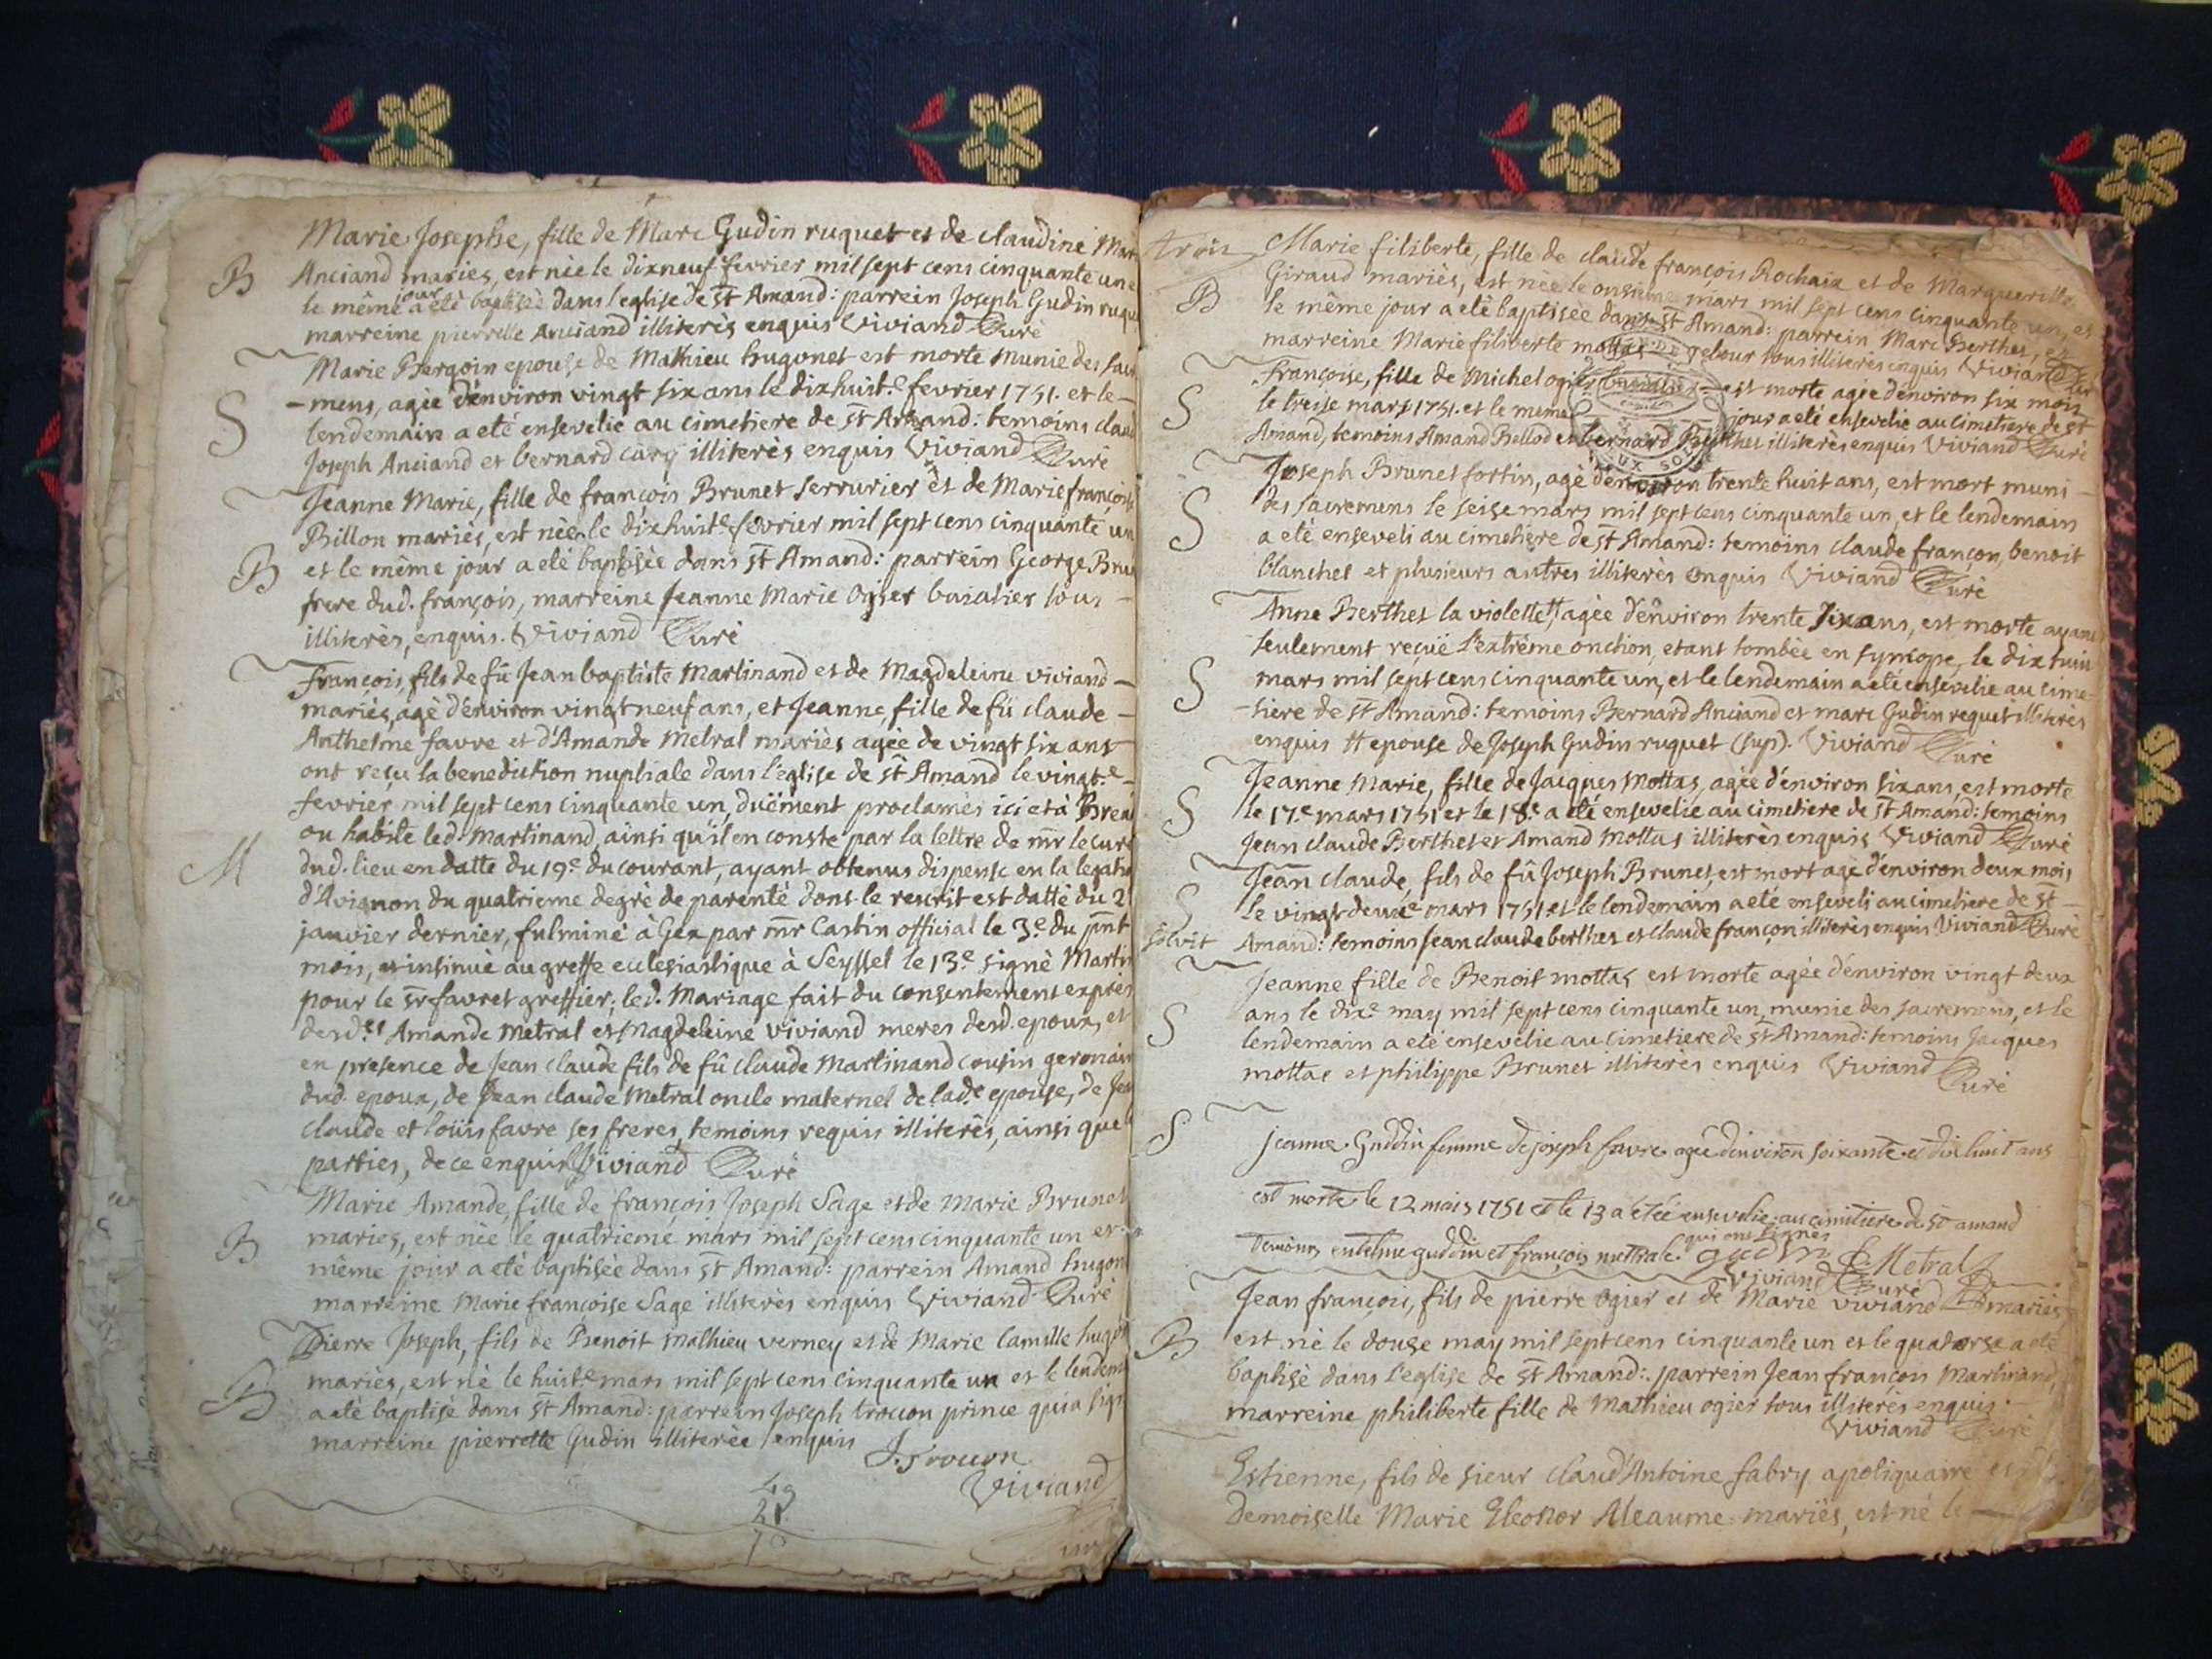 Marie Josephe, fille de Marc Gudin ruquet et de claudine Mar
B
Anciand mariés, est née le dixneuf fevrier mil sept cens cinquante un e
le même jour a eté baptisée dans l'eglise de st Amand: parrein Joseph Gudin ruqu
marreine pierrette Anciand illiterés enquis Viviand Curé
Marie Bergoin epouse de Mathieu hugonet est morte munie des sacr
S
- mens, agée d'énviron vingt six ans le dixhuit.e fevrier 1751. et le -
lendemain a eté ensevelie au cimetiere de st Amand: temoins claud
Joseph Anciand et bernard illiterés enquis Viviand Curé
Jeanne Marie, fille de françois Brunet serrurier et de Marie françoise
Billon mariés, est née le dixhuit.e fevrier mil sept cens cinquante un
B
et le même jour a eté baptisée dans st Amand: parrein George Brun
frere dud. françois, marreine Jeanne Marie Ogier tous -
illiterés, enquis. Viviand Curé
François, fils de fû Jean baptiste Martinand et de Magdeleine viviand -
mariés, agé d'énviron vingtneuf ans, et Jeanne, fille de fû claude -
Anthelme favre et d'Amande metral mariés agée de vingt six ans
ont reçu la benediction nuptiale dans l'eglise de st Amand le vingt.e -
fevrier mil sept cens cinquante un, duëment proclamés ici et à
ou habite led. Martinand, ainsi qu'il en conste par la lettre de mr le curé
M
dud. lieu en datte du 19.e du courant, ayant obtenus dispense en la legatio
d'Avignon du quatrieme degré de parenté dont le rescrit est datté du 2
janvier dernier, fulminé à Gex par mr Castin official le 3.e du pnt
mois, et insinué au greffe ecclesiastique à Seyssel le 13.e signé Martin
pour le sr favret greffier; led. Mariage fait du consentement exprés
desd.es Amande Metral et Magdeleine viviand meres desd. epoux, et
en presence de Jean claude fils de fû claude Martinand cousin germain
dud. epoux, de Jean claude Metral oncle maternel de lad.e epouse, de Jea
claude et loüis favre ses freres, temoins requis illiterés, ainsi que l
parties, de ce enquis Viviand Curé
Marie Amande, fille de françois Joseph Sage et de Marie Brunet
B
mariés, est née le quatrieme mars mil sept cens cinquante un et
même jour a eté baptisée dans st Amand: parrein Amand hugon
marreine Marie françoise Sage illiterés enquis Viviand Curé
Pierre Joseph, fils de Benoit Mathieu verney et de Marie Camille hugon
B
mariés, est né le huit.e mars mil sept cens cinquante un et le lendem
a eté baptisé dans st Amand: parrein Joseph trocon prince qui a sign
marreine pierrette Gudin illiterée enquis
J. Trocon
Viviand
49
21
trois
Marie filiberte, fille de claude françois Rochaix et de Margueritte
Giraud mariés, est née le onsieme mars mil sept cens cinquante un, et
B
le même jour a eté baptisée dans st Amand: parrein Marc Berthet, et
marreine Marie filiberte mottas tous illiterés enquis Viviand Curé
Françoise, fille de Michel ogier est morte agée d'énviron six mois
S
le treise mars 1751. et le meme jour a eté ensevelie au cimetiere de st
Amand, temoins Amand Bellod et bernard illiterés enquis Viviand Curé
Joseph Brunet fortin, agé d'énviron trente huit ans, est mort muni -
S
des sacremens le seise mars mil sept cens cinquante un, et le lendemain
a eté enseveli au cimetiere de st Amand: temoins claude françon, benoit
blanchet et plusieurs autres illiterés enquis Viviand Curé
Anne Berthet la violette,# agée d'énviron trente six ans, est morte ayant
seulement reçuë l'extrême onction, etant tombée en syncope, le dix huit
S
mars mil sept cens cinquante un, et le lendemain a eté ensevelie au cime-
-tiere de st Amand: temoins Bernard Anciand et marc Gudin requet illiterés
enquis # epouse de Joseph Gudin ruquet (sup). Viviand Curé
Jeanne Marie, fille de Jacques Mottas, agée d'énviron six ans, est morte
S
le 17.e mars 1751 et le 18.e a eté ensevelie au cimetiere de st Amand: temoins
Jean claude Berthet et Amand Mottas illiterés enquis Viviand Curé
Jean claude, fils de fû Joseph Brunet, est mort agé d'énviron deux mois
S
le vingtdeux.e mars 1751. et le lendemain a eté enseveli au cimetiere de st -
solvit
Amand: temoins Jean claude berthet et claude françon illiterés enquis Viviand Curé
Jeanne fille de Benoit mottas est morte agée d'énviron vingt deux
ans le dix.e may mil sept cens cinquante un, munie des sacremens, et le
S
lendemain a eté ensevelie au cimetiere de st Amand: temoins Jacques
mottas et philippe Brunet illiterés enquis Viviand Curé
S
jeanne Guddin femme de joseph favre agée denviron soixante et dix huit ans
est morte le 12 mais 1751 et le 13 a etée ensevelie au cimitiere de st amand
temoins entelme guddin et françois mettrale. qui ont signés gudin F Metral
Viviand Curé
Jean françois, fils de pierre ogier et de Marie viviand mariés
B
est né le douse may mil sept cens cinquante un et le quatorse a eté
baptisé dans l'eglise de st Amand: parrein Jean françois Martinand,
marreine philiberte fille de Mathieu ogier tous illiterés enquis.
Viviand Curé
Estienne, fils de sieur claud'Antoine fabry apotiquaire et d
Demoiselle Marie Eleonor Aleaume mariés, est né le